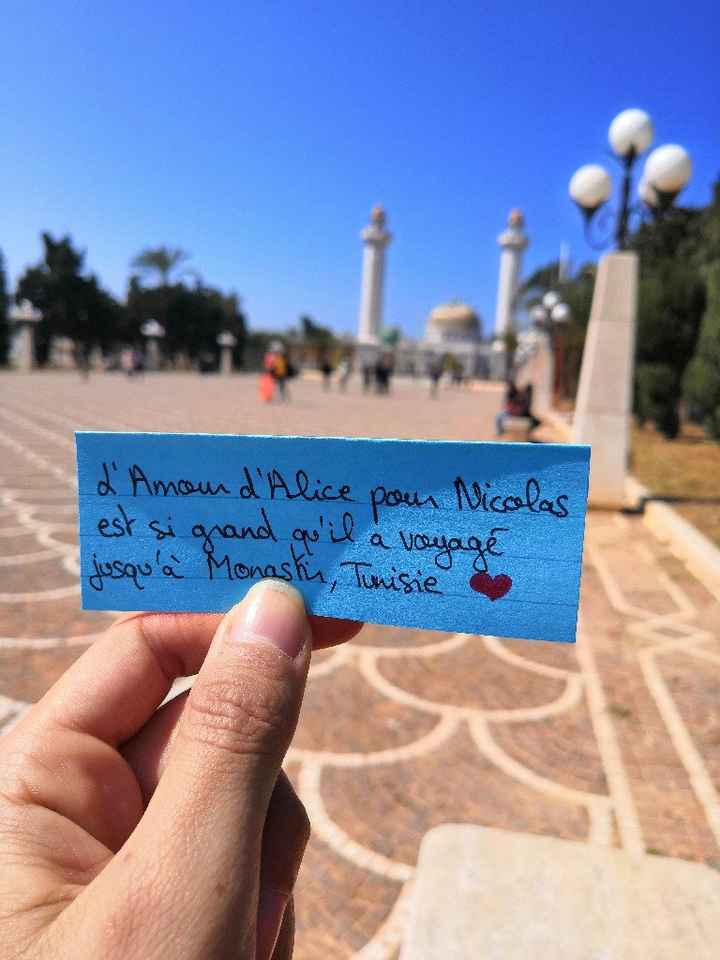 L'Amour d'Alice pour Nicolas
est si grand qu'il a voyagé
jusqu'à Monastir, Tunisie